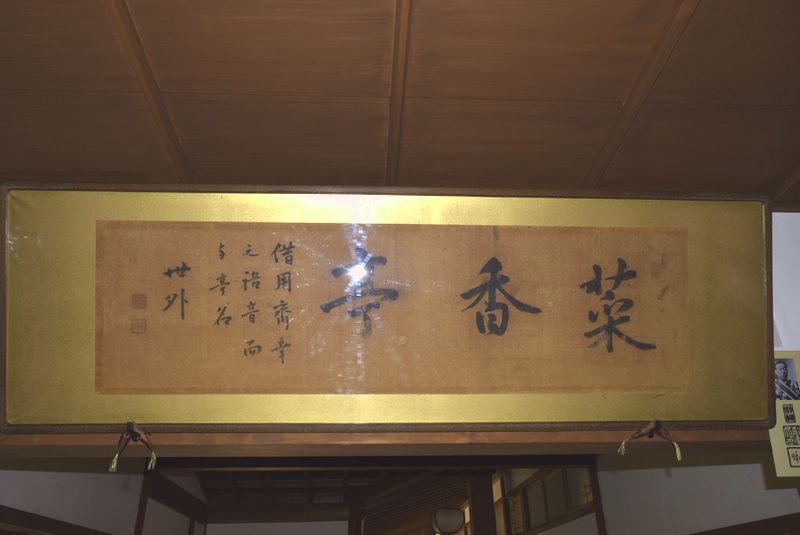 菜香亭
借用齋幸
之語音而
与亭名
世外